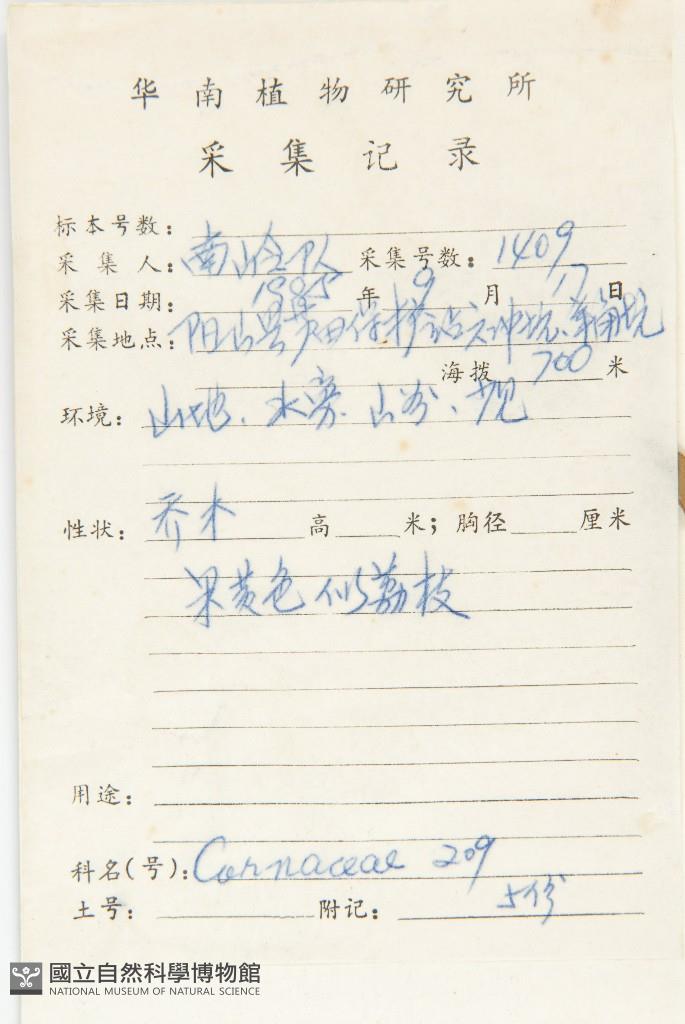 华南植物研究所
采集记录
标本号数:
采集人: 南岭队 采集号数: 1409
采集日期: 1985 年 9 月 17 日
采集地点: 阳山县黄田保护站
海拨 700 米
环境: 山地、水旁、山谷、
性状: 乔木 高 米; 胸径 厘米
果黄色似荔枝
用途:
科名(号): Cornaceae 209
土号: 附记: 5份
國立自然科學博物館
NATIONAL MUSEUM OF NATURAL SCIENCE